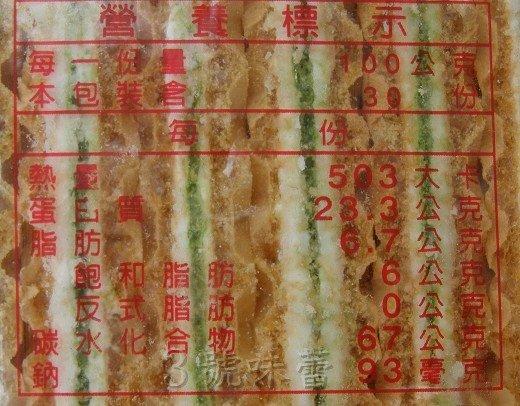 營養標示
每一份量 100 公克
本包裝含 30 份
每份
熱量 503 大卡
蛋白質 23.3 公克
脂肪 6.7 公克
飽和脂肪 6 公克
反式脂肪 0 公克
碳水化合物 67 公克
鈉 93 毫克
3號味蕾